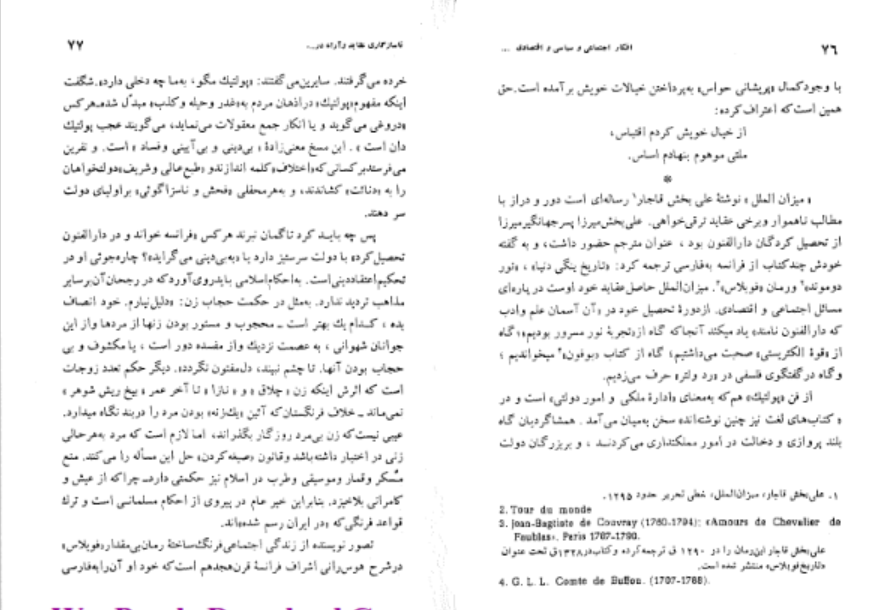 ۷۶
افکار اجتماعی و سیاسی و اقتصادی ...
با وجود کمال «پریشانی حواس» به‌پرداختن خیالات خویش برآمده است. حق
همین است که اعتراف کرده:
از خیال خویش کردم اقتباس،
ملتی موهوم بنهادم اساس.
*
«میزان الملل» نوشتهٔ علی بخش قاجار۱ رساله‌ای است دور و دراز با
مطالب ناهموار وبرخی عقاید ترقی‌خواهی. علی‌بخش‌میرزا پسرجهانگیرمیرزا
از تحصیل کردگان دارالفنون بود ، عنوان مترجم حضور داشت، و به گفته
خودش چندکتاب از فرانسه به‌فارسی ترجمه کرد: «تاریخ ینگی دنیا» ، «تور
دوموند»۲ ورمان «فوبلاس»۳. میزان‌الملل حاصل عقاید خود اوست در پاره‌ای
مسائل اجتماعی و اقتصادی. ازدورهٔ تحصیل خود در «آن آسمان علم وادب
که دارالفنون نامند» یاد میکند آنجاکه گاه از «تجربهٔ نور مسرور بودیم» ؛ گاه
از «قوهٔ الکتریستی» صحبت می‌داشتیم؛ گاه از کتاب «بوفون»۴ میخواندیم ؛
وگاه درگفتگوی فلسفی در «رد ولتر» حرف می‌زدیم.
از فن «پولتیك» هم‌که به‌معنای «ادارهٔ ملکی و امور دولتی» است و در
«کتاب‌های لغت نیز چنین نوشته‌اند» سخن به‌میان می‌آمد . همشاگردیان گاه
بلند پروازی و دخالت در امور مملکتداری می‌کردنـد ، و بزرگان دولت
۱. علی‌بخش قاجار، میزان‌الملل، خطی تحریر حدود ۱۲۹۵.
2. Tour du monde
3. Jean-Bagtiste de Couvray (1760-1794): «Amours de Chevalier de
Faublas». Paris 1787-1790.
علی‌بخش قاجار این‌رمان را در ۱۲۹۰ ق ترجمه‌کرده وکتاب‌در۱۳۲۸ق تحت عنوان
«تاریخ‌فوبلاس» منتشر شده است.
4. G. L. L. Comte de Buffon. (1707-1788).
ناسازگاری عقاید وآراء در...
۷۷
خرده می‌گرفتند. سایرین‌می‌گفتند: «پولتیك مگو، به‌ما چه دخلی دارد». شگفت
اینکه مفهوم «پولتیك» دراذهان مردم به «غدر وحیله وکذب» مبدّل شده. هرکس
«دروغی می‌گوید و یا انکار جمع معقولات می‌نماید، می‌گویند عجب پولتیك
دان است» . این مسخ معنی‌زادهٔ «بی‌دینی و بی‌آیینی وفساد» است. و نفرین
می‌فرستد برکسانی که «اختلاف‌کلمه اندازند و «طبع‌عالی وشریف» دولتخواهان
را به «دنائت» کشاندند، و به‌هرمحفلی «فحش و ناسزاگوئی» براولیای دولت
سر دهند.
پس چه بایـد کرد تاگمان نبرند هرکس «فرانسه خواند و در دارالفنون
تحصیل‌کرد» با دولت سرستیز دارد یا «به‌بی‌دینی می‌گراید»؟ چاره‌جوئی او در
تحکیم اعتقاددینی است. به‌احکام‌اسلامی بایدروی‌آوردکه در رجحان‌آن‌برسایر
مذاهب تردید ندارد. به‌مثل در حکمت حجاب زن: «دلیل‌نیارم. خود انصاف
بده ، کـدام یك بهتر است ـ محجوب و مستور بودن زنها از مردها واز این
جوانان شهوانی ، به عصمت نزدیك واز مفسده دور است ، یا مکشوف و بی
حجاب بودن آنها. تا چشم نبیند، دل‌مفتون نگردد». دیگر حکم تعدد زوجات
است که اثرش اینکه زن «چلاق» و «نازا» تا آخر عمر «بیخ ریش شوهر»
نمی‌ماند ـ خلاف فرنگستان‌که آئین «یك‌زنه» بودن مرد را دربند نگاه میدارد.
عیبی نیست‌که زن بی‌مرد روزگار بگذراند، اما لازم است که مرد به‌هرحالی
زنی در اختیار داشته‌باشد وقانون «صیغه‌کردن» حل این مسأله را می‌کند. منع
مُسکر وقمار وموسیقی وطرب در اسلام نیز حکمتی دارد ـ چراکه از عیش و
کامرانی بلاخیزد. بنابراین خیر عام در پیروی از احکام مسلمانی است و ترك
قواعد فرنگی‌که «در ایران رسم شده»اند.
تصور نویسنده از زندگی اجتماعی فرنگ‌ساختهٔ رمان‌بی‌مقدار «فوبلاس»
درشرح هوس‌رانی اشراف فرانسهٔ قرن‌هجدهم است‌که خود او آن‌رابه‌فارسی